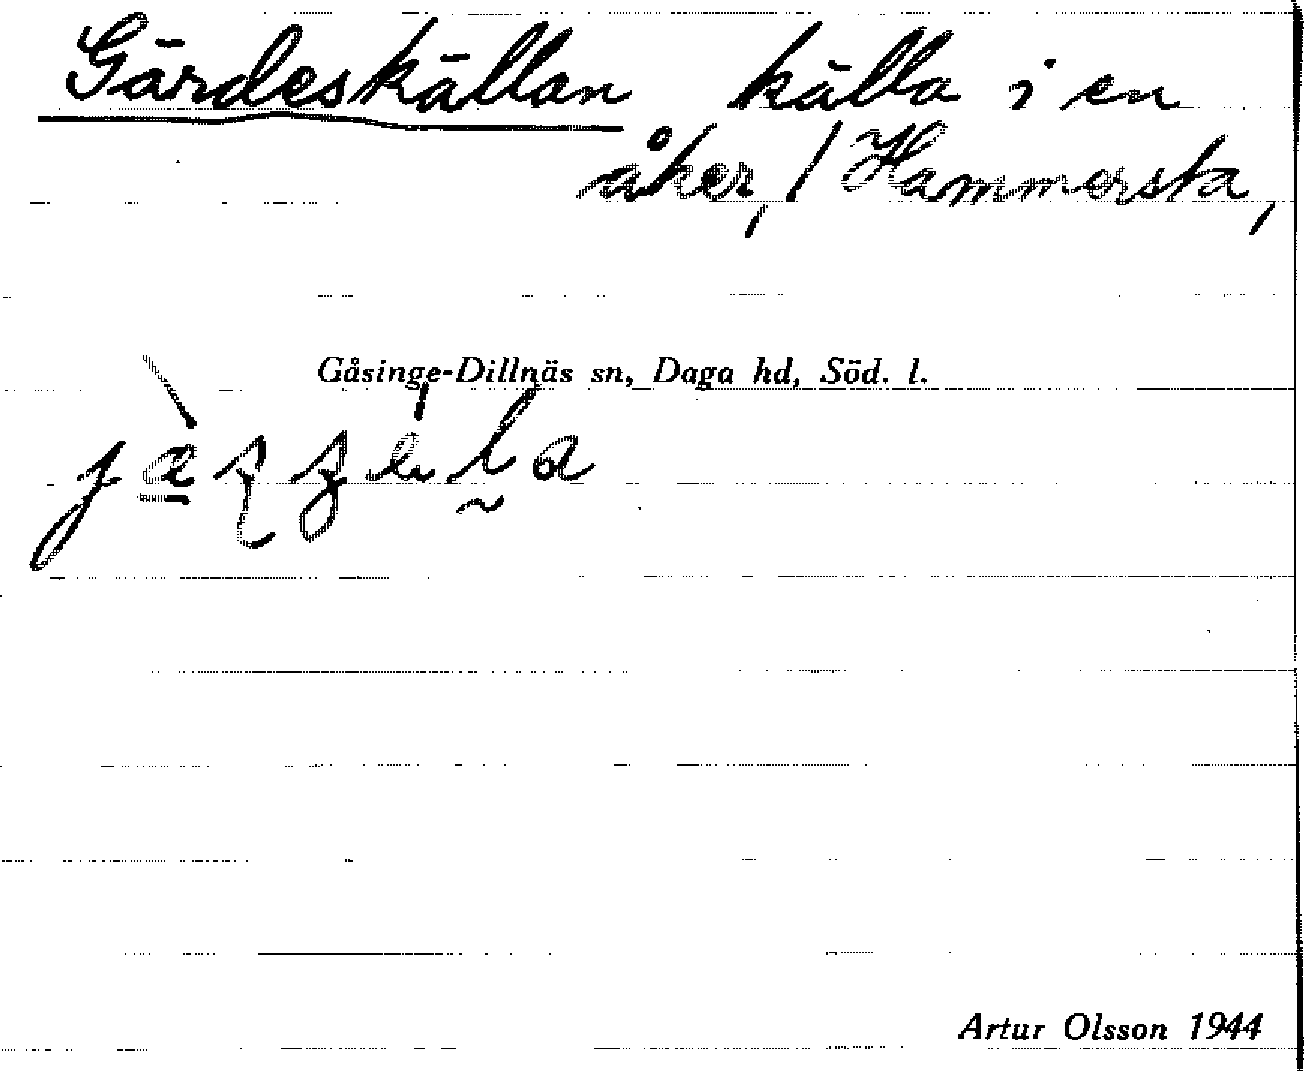 Gärdeskällan källa i en
åker, / Hammersta,
Gåsinge-Dillnäs sn, Daga hd, Söd. l.
Artur Olsson 1944